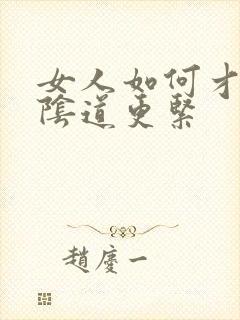 女人如何才
陰道更緊
趙慶一